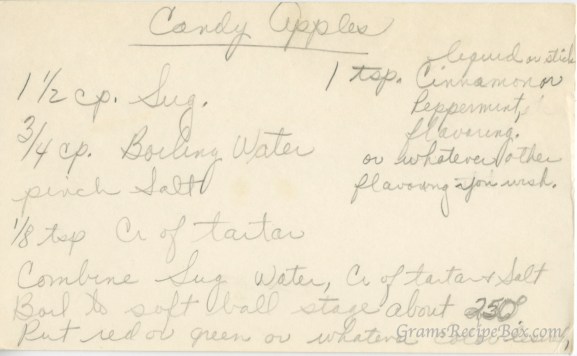 Candy Apples
1 1/2 cp. Sug.
3/4 cp. Boiling Water
pinch Salt
1/8 tsp Cr of tartar
1 tsp. liquid or stick
Cinnamon or
Peppermint,
flavoring.
or whatever other
flavoring you wish.
Combine Sug Water, Cr of tartar & Salt
Boil to soft ball stage about 250°
Put red or green or whatever
GramsRecipeBox.com